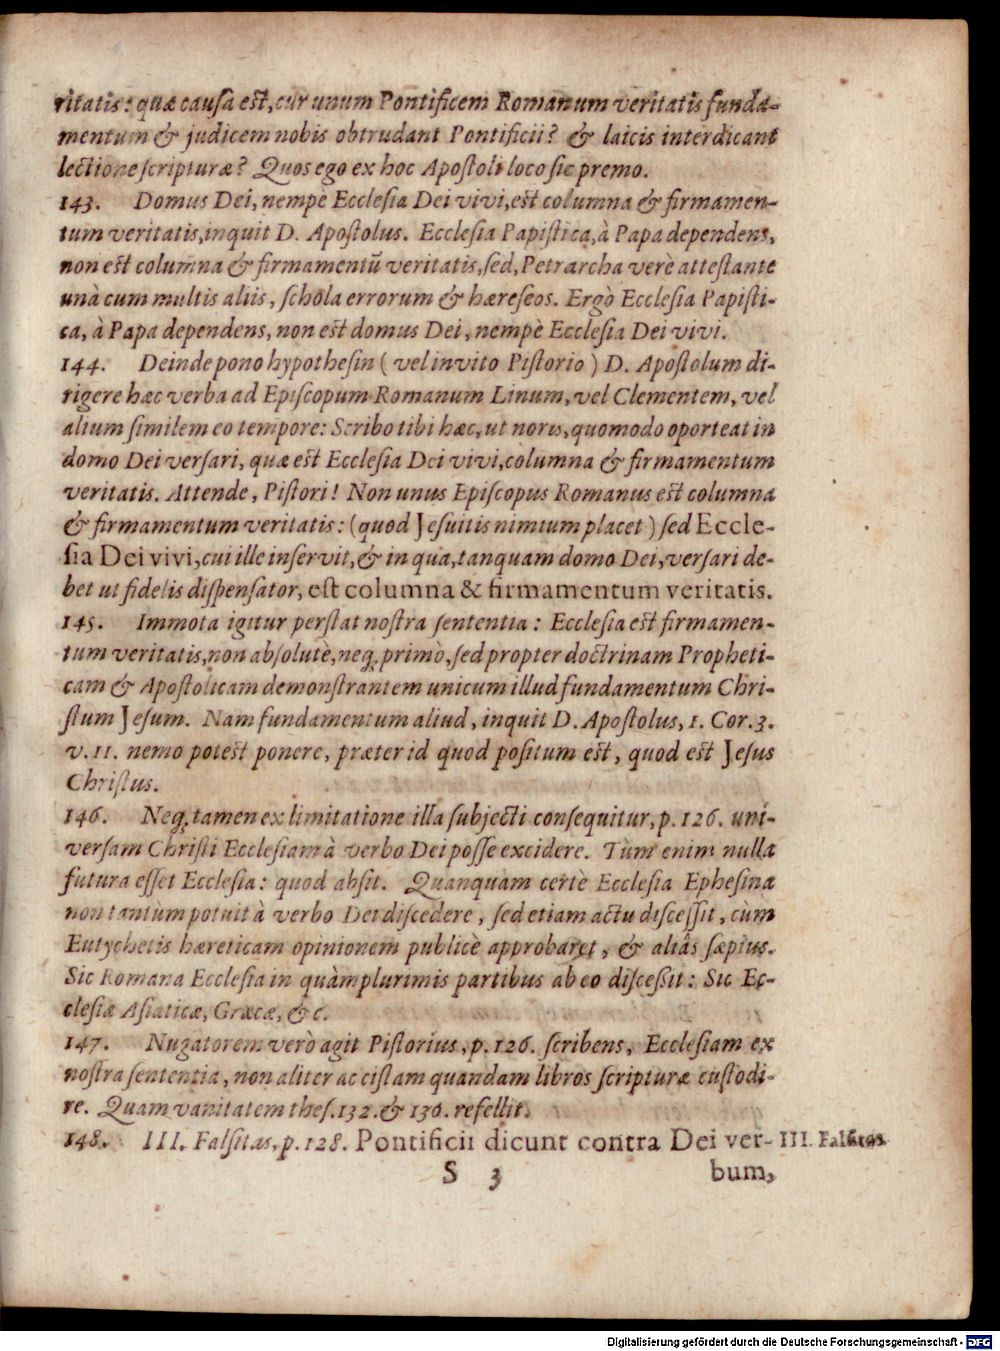 ritatis: quæ causa est, cur unum Pontificem Romanum veritatis funda-
mentum & judicem nobis obtrudant Pontificii? & laicis interdicant
lectione scripturæ? Quos ego ex hoc Apostoli loco sic premo.
143. Domus Dei, nempè Ecclesia Dei vivi, est columna & firmamen-
tum veritatis, inquit D. Apostolus. Ecclesia Papistica, à Papa dependens,
non est columna & firmamentū veritatis, sed, Petrarcha verè attestante
unà cum multis aliis, schola errorum & hæreseos. Ergò Ecclesia Papisti-
ca, à Papa dependens, non est domus Dei, nempè Ecclesia Dei vivi.
144. Deinde pono hypothesin (vel invito Pistorio) D. Apostolum di-
rigere hæc verba ad Episcopum Romanum Linum, vel Clementem, vel
alium similem eo tempore: Scribo tibi hæc, ut noris, quomodo oporteat in
domo Dei versari, quæ est Ecclesia Dei vivi, columna & firmamentum
veritatis. Attende, Pistori! Non unus Episcopus Romanus est columna
& firmamentum veritatis: (quod Jesuitis nimium placet) sed Eccle-
sia Dei vivi, cui ille inservit, & in qua, tanquam domo Dei, versari de-
bet ut fidelis dispensator, est columna & firmamentum veritatis.
145. Immota igitur perstat nostra sententia: Ecclesia est firmamen-
tum veritatis, non absolutè, neq; primò, sed propter doctrinam Propheti-
cam & Apostolicam demonstrantem unicum illud fundamentum Chri-
stum Jesum. Nam fundamentum aliud, inquit D. Apostolus, 1. Cor. 3.
v. 11. nemo potest ponere, præter id quod positum est, quod est Jesus
Christus.
146. Neq; tamen ex limitatione illa subjecti consequitur, p. 126. uni-
versam Christi Ecclesiam à verbo Dei posse excidere. Tùm enim nulla
futura esset Ecclesia: quod absit. Quanquam certè Ecclesia Ephesina
non tantùm potuit à verbo Dei discedere, sed etiam actu discessit, cùm
Eutychetis hæreticam opinionem publicè approbaret, & aliâs sæpius.
Sic Romana Ecclesia in quàmplurimis partibus ab eo discessit: Sic Ec-
clesiæ Asiaticæ, Græcæ, &c.
147. Nugatorem verò agit Pistorius, p. 126. scribens, Ecclesiam ex
nostra sententia, non aliter ac cistam quandam libros scripturæ custodi-
re. Quam vanitatem thes. 132. & 136. refellit.
148. III. Falsitas, p. 128. Pontificii dicunt contra Dei ver- III. Falsitas
S 3 bum,
Digitalisierung gefördert durch die Deutsche Forschungsgemeinschaft - DFG